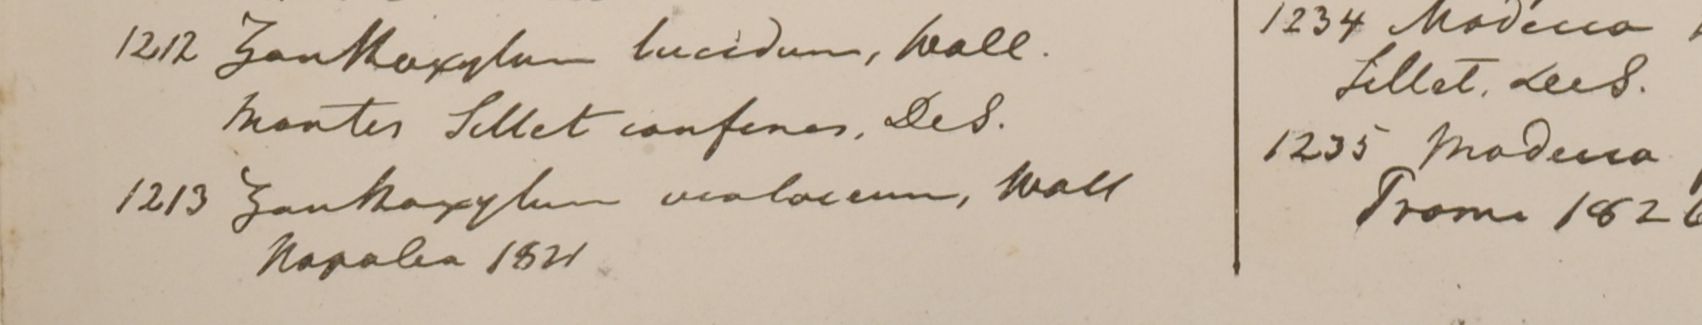 1212 Zanthoxylum lucidum, Wall.
Montes Sillet confines. DeS.
1213 Zanthoxylum violaceum, Wall
Napalia 1821
1234 Modecca
Sillet. DeS.
1235 Modecca
Prome 1826